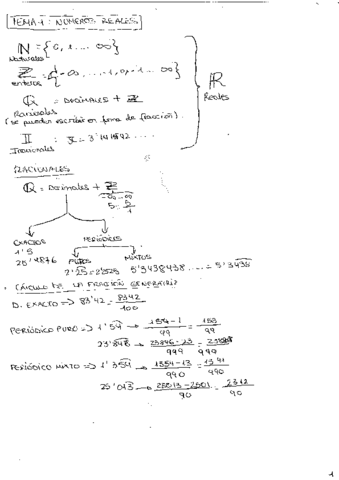 TEMA 1: NÚMEROS REALES
ℕ = {0, 1 .... ∞}
Naturales
ℤ = {-∞, ...-1, 0, 1 ... ∞}
enteros
ℝ
Reales
ℚ = DECIMALES + ℤ
Racionales
(se pueden escribir en forma de fracción).
𝕀 = 3'141592 .....
Irracionales
RACIONALES
ℚ = Decimales + ℤ
-∞ ... ∞
5 = 5/1
EXACTOS
PERIÓDICOS
1'5
25'4876
PUROS
MIXTOS
5'3438438 ....
CÁLCULO DE LA FRACCIÓN GENERATRIZ
D. EXACTO => 83'42 = 8342/100
PERIÓDICO PURO => 1'54 → 154-1/99 = 153/99
23'848 → /999 = /999
PERIÓDICO MIXTO => 1'354 → 1354-13/990 = 1341/990
25'013 → /90 = 2312/90
1